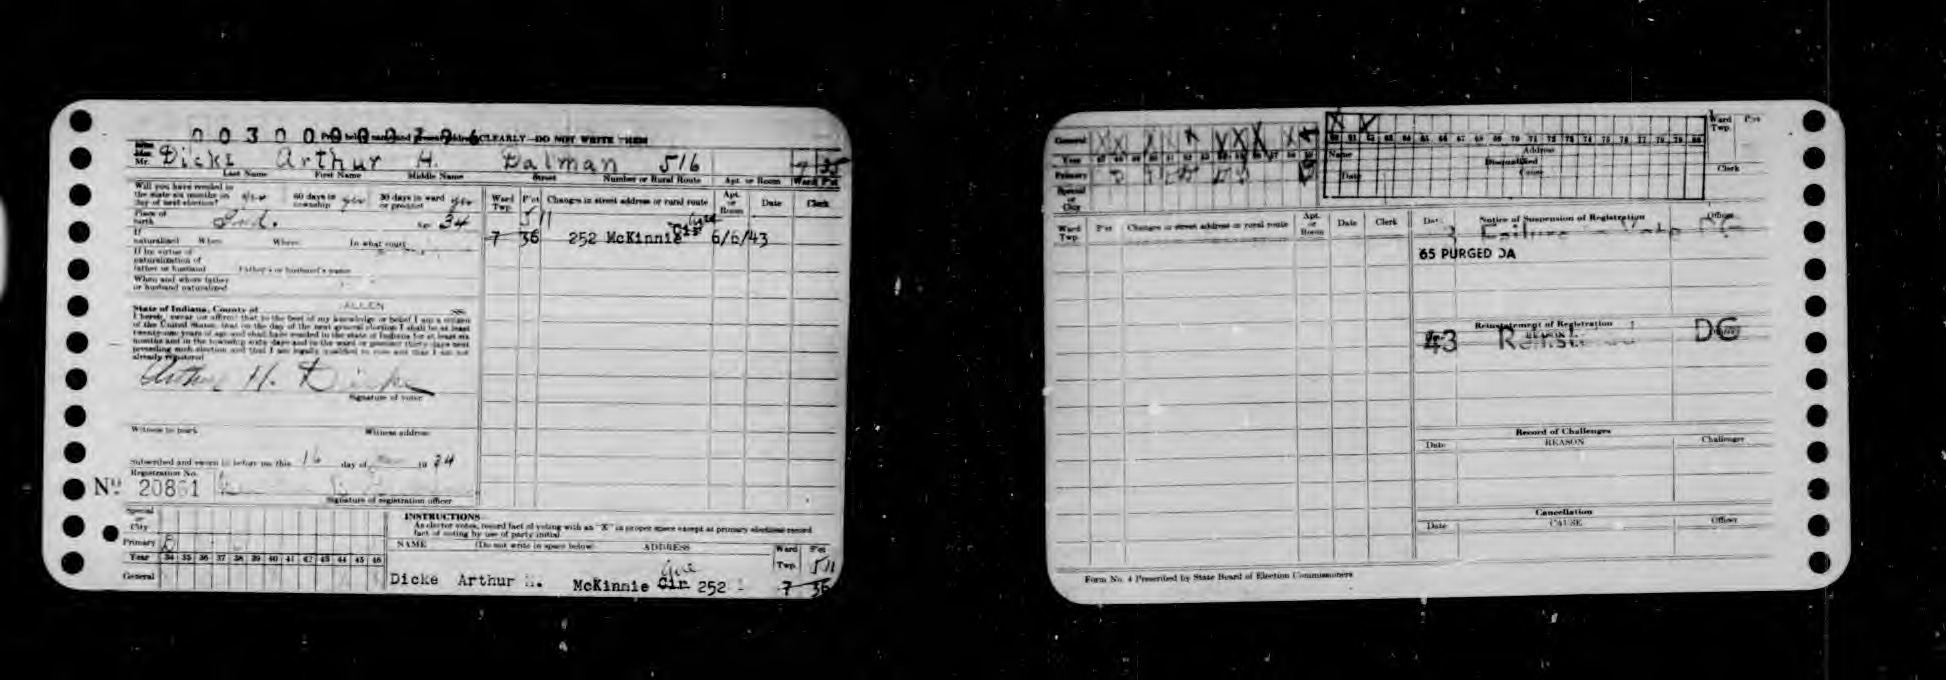 00300000796 CLEARLY—DO NOT WRITE
Mr. Dicke Arthur H. Dalman 516
Last Name First Name Middle Name Street Number or Rural Route Apt. or Room Ward P'ct
Will you have resided in
the state six months on
day of next election? yes 60 days in township yes 30 days in ward or precinct yes
Place of birth Ind. Age 34
If naturalized When Where In what court
If by virtue of
naturalization of
father or husband Father's or husband's name
When and where father
or husband naturalized
Ward Twp. P'ct Changes in street address or rural route Apt. or Room Date Clerk
511
7 36 252 McKinnie Cir Ave 6/6/43
ALLEN
State of Indiana, County of ss:
I hereby swear (or affirm) that to the best of my knowledge or belief I am a citizen
of the United States, that on the day of the next general election I shall be at least
twenty-one years of age and shall have resided in the state of Indiana for at least six
months and in the township sixty days and in the ward or precinct thirty days next
preceding such election and that I am legally qualified to vote and that I am not
already registered
Arthur H. Dicke
Signature of voter
Witness to mark Witness address
Subscribed and sworn to before me this 16 day of 19 34
Registration No.
No 20861
Signature of registration officer
Special or City
Primary
Year 34 35 36 37 38 39 40 41 42 43 44 45 46
General
INSTRUCTIONS
As elector votes, record fact of voting with an "X" in proper space except at primary elections record
fact of voting by use of party initial
NAME (Do not write in space below) ADDRESS Ward Twp. P'ct
Ave 511
Dicke Arthur H. McKinnie Cir 252 7 36
General X X X X X X X X X
Year
Primary
Special or City
X X
60 61 62 63 64 65 66 67 68 69 70 71 72 73 74 75 76 77 78 79 80
Name Address
Disqualified
Date Cause
Ward Twp. P'ct
Clerk
Ward Twp. P'ct Changes in street address or rural route Apt. or Room Date Clerk
Date Notice of Suspension of Registration Officer
Failure to
65 PURGED DA
Reinstatement of Registration
REASON
43 DC
Record of Challenges
Date REASON Challenger
Cancellation
Date CAUSE Officer
Form No. 4 Prescribed by State Board of Election Commissioners